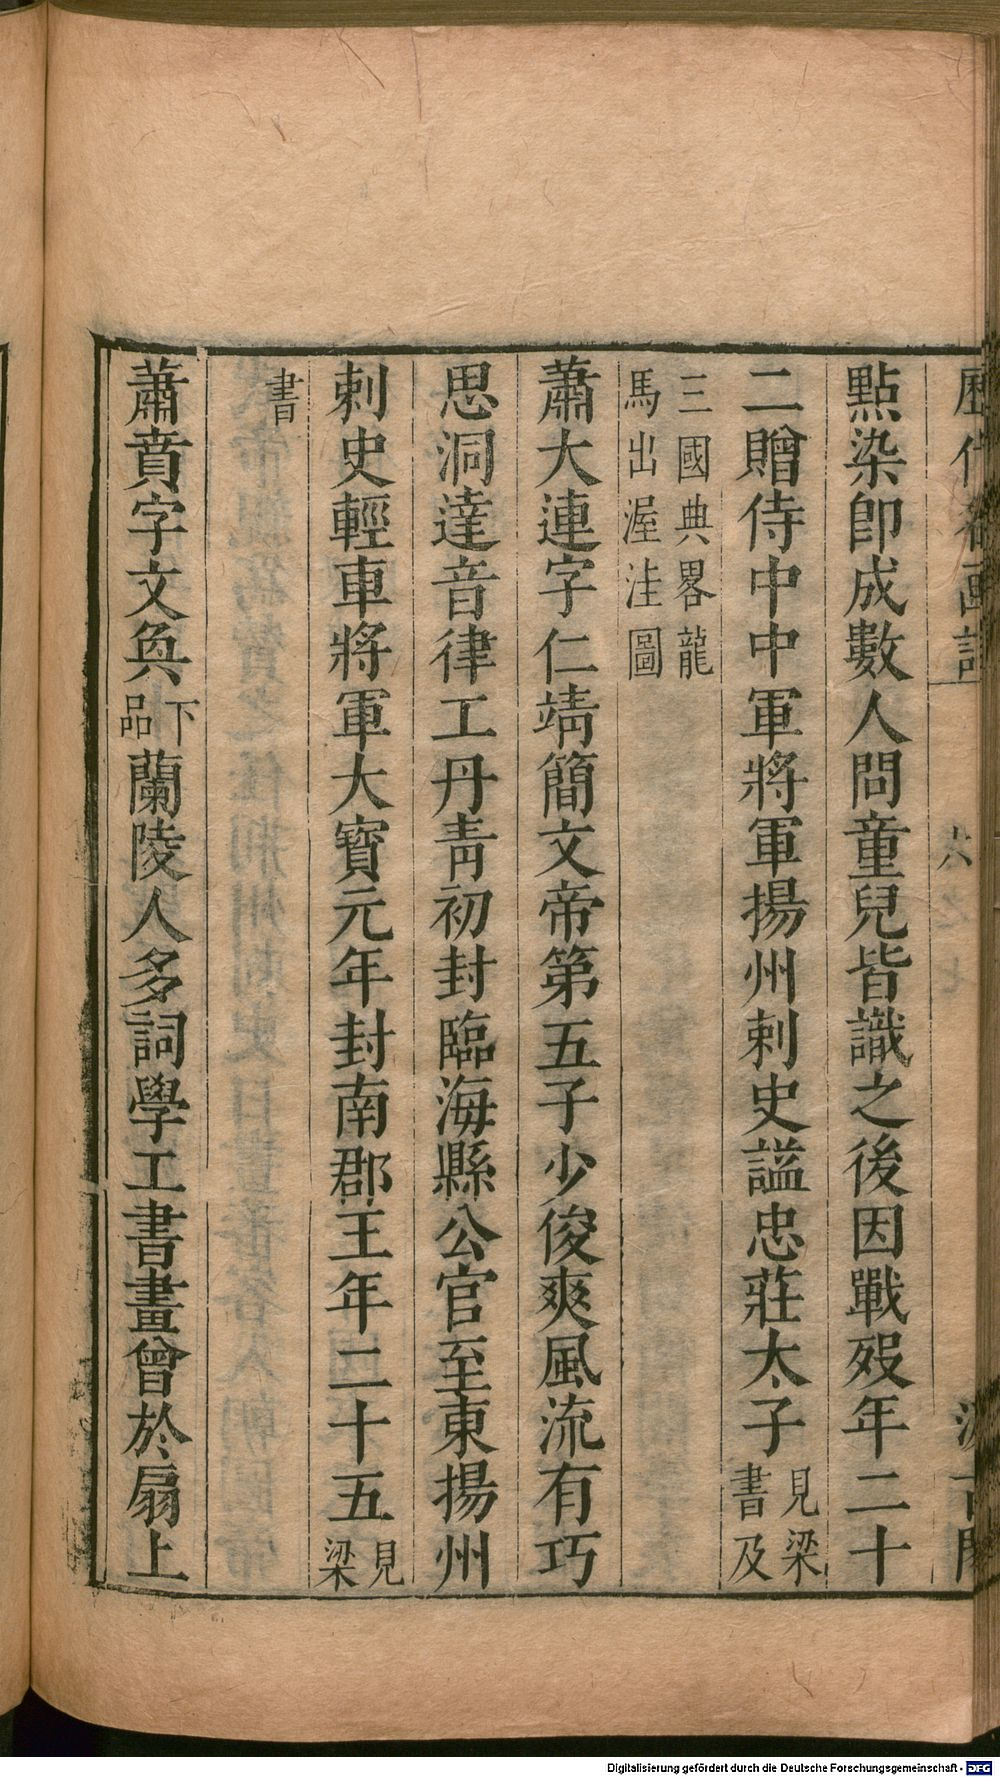 歷代名畫記 六 汲古閣
點染即成數人問童兒皆識之後因戰歿年二十
二贈侍中中軍將軍揚州刺史謚忠莊太子見梁書及
三國典畧龍
馬出渥洼圖
蕭大連字仁靖簡文帝第五子少俊爽風流有巧
思洞達音律工丹青初封臨海縣公官至東揚州
刺史輕車將軍大寶元年封南郡王年二十五見梁
書
蕭賁字文奐下品蘭陵人多詞學工書畫曾於扇上
Digitalisierung gefördert durch die Deutsche Forschungsgemeinschaft - DFG